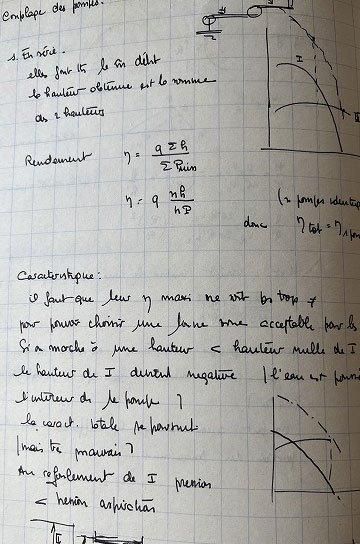 Couplage des pompes.
1. En série.
elles font tts le m débit
la hauteur obtenue est la somme
des 2 hauteurs
I
II
Rendement η = q Σh / Σ Puiss
η = q nh / nP
(n pompes identiq
donc η tot = η 1 pom
Caractéristique :
il faut que leur η maxi ne soit pas trop ≠
pour pouvoir choisir une bonne zone acceptable pour les
Si on marche à une hauteur < hauteur nulle de I
la hauteur de I devient négative (l'eau est
l'intérieur de la pompe)
la caract. totale se poursuit
(mais très mauvais)
Au refoulement de I pression
< pression aspiration
II